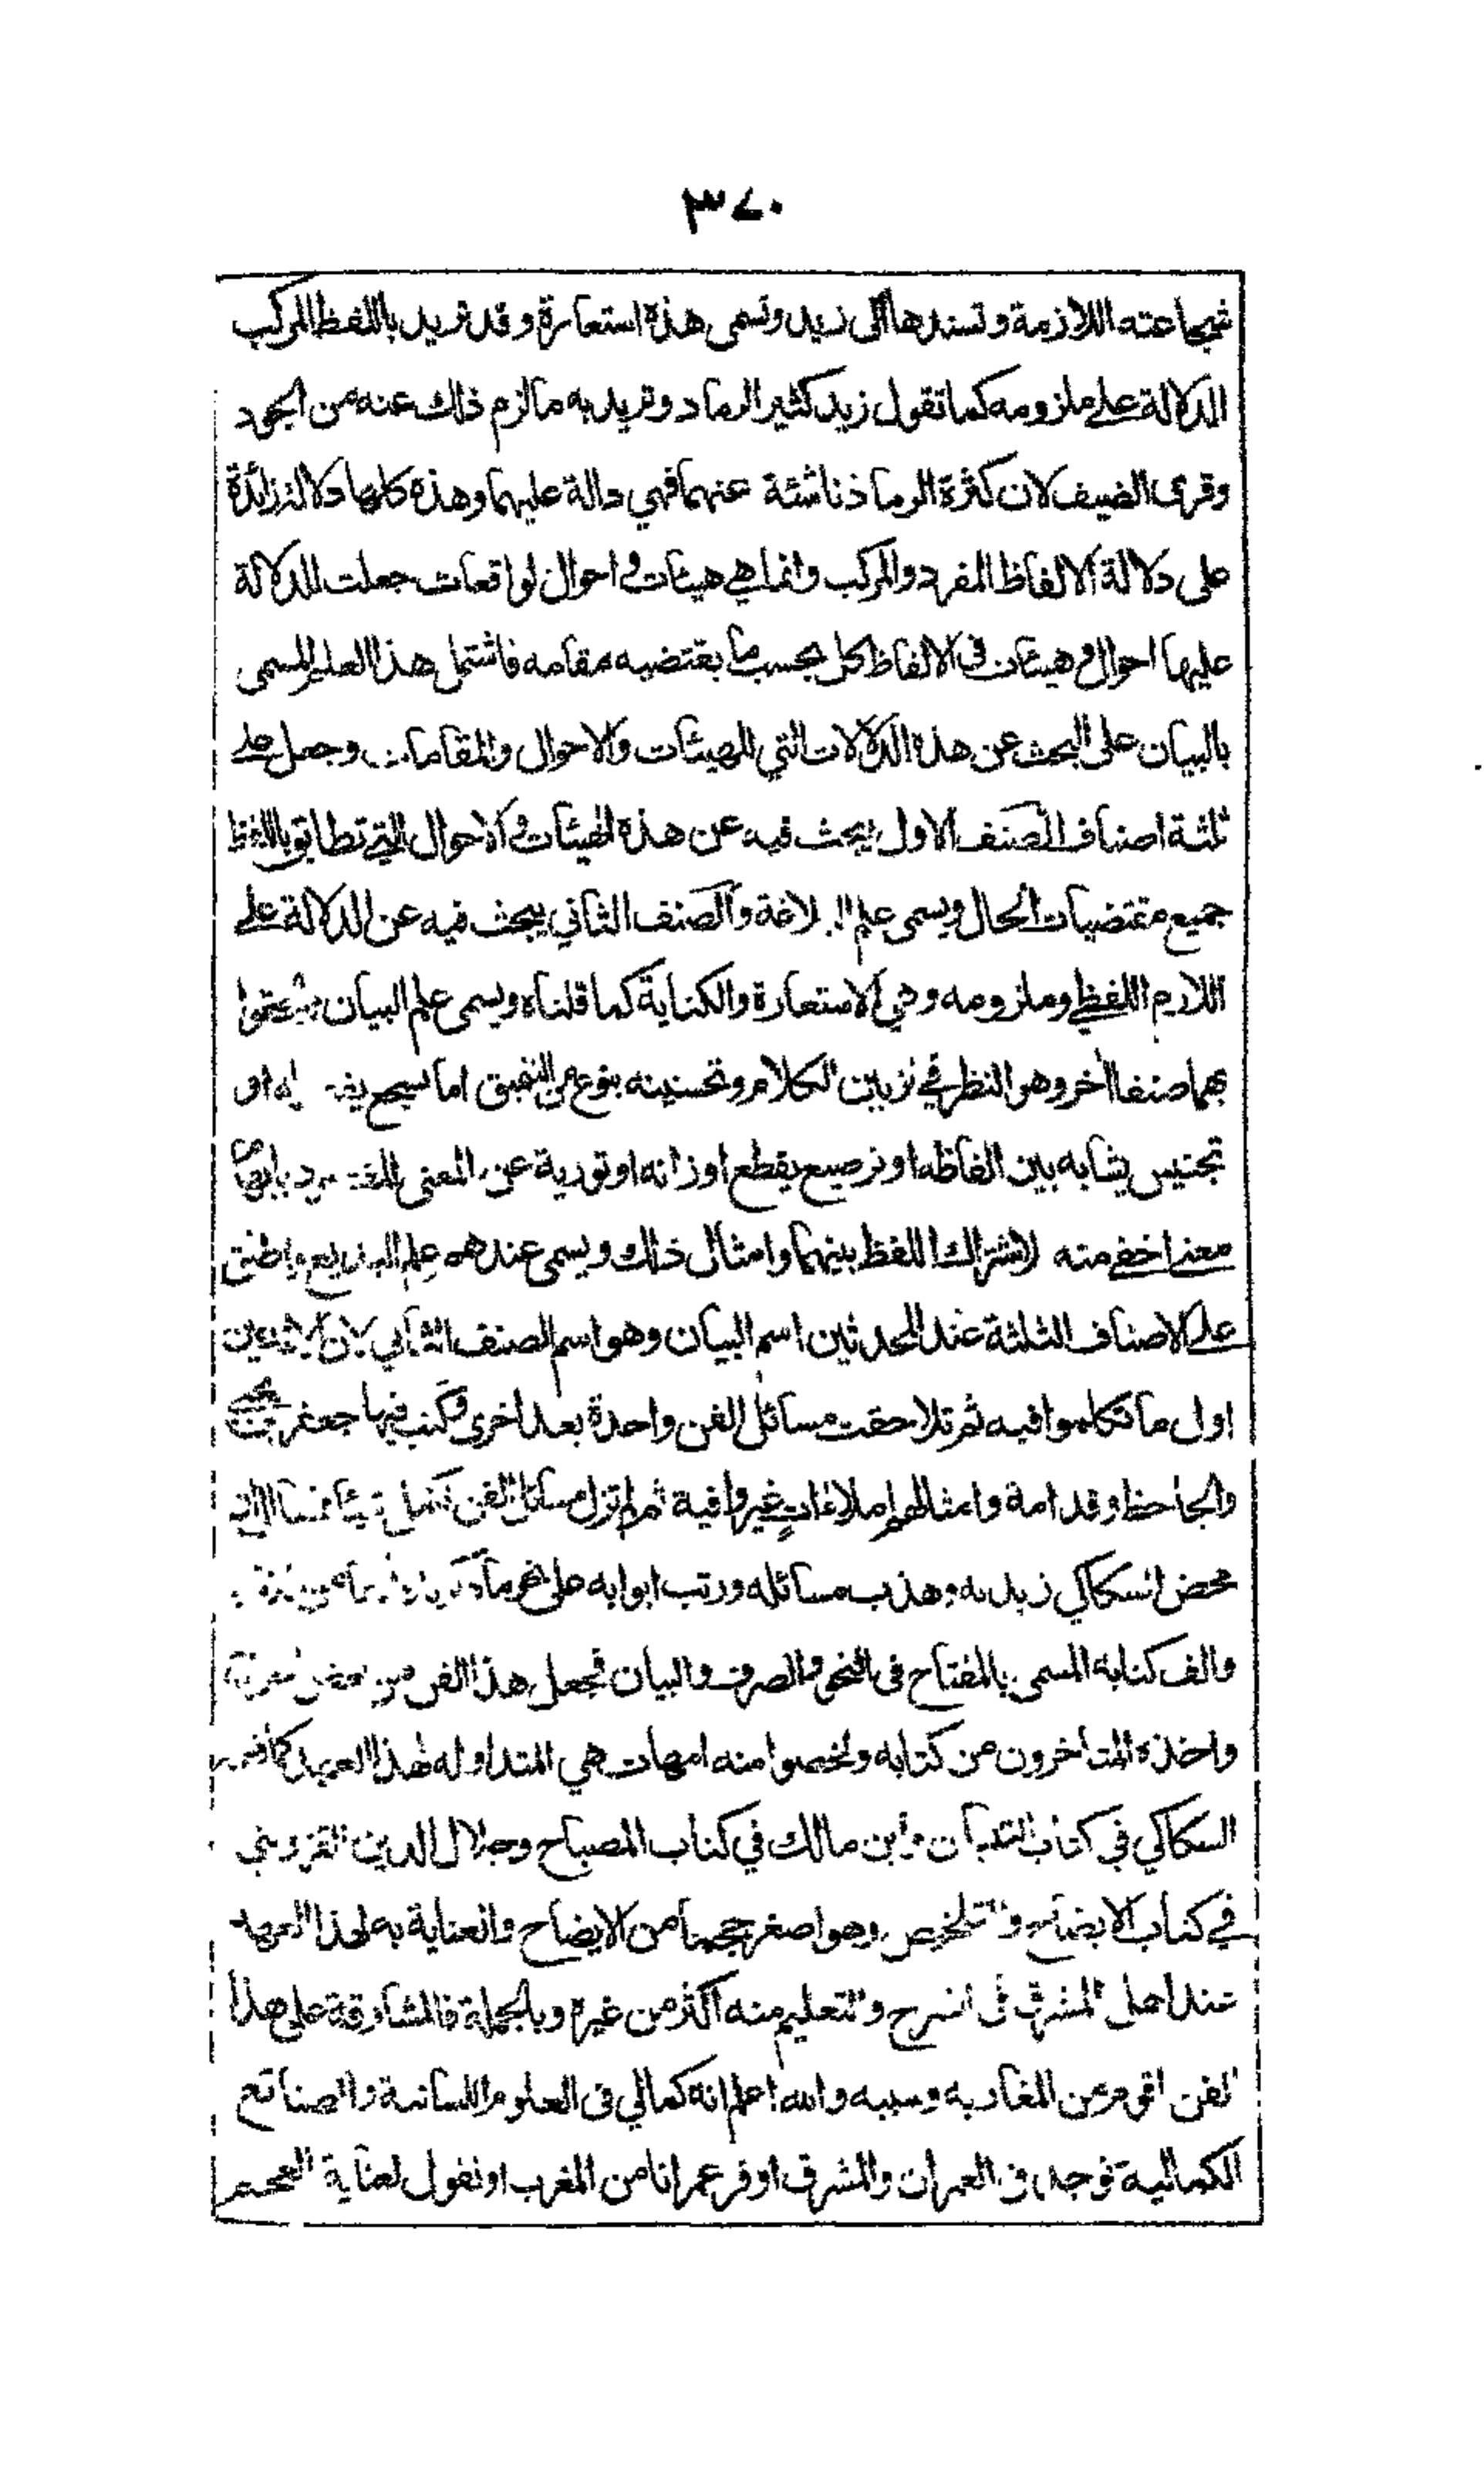 ٣٧٠
شجاعته اللازمة وتسندها الى زيد وتسمى هذه استعارة وقد تريد باللفظ المركب
الدلالة على ملزومه كما تقول زيد كثير الرماد وتريد به ما لزم ذلك عنه من الجود
وقرى الضيف لان كثرة الرماد ناشئة عنهما فهي دالة عليهما وهذه كلها دلالة زائدة
على دلالة الالفاظ المفرد والمركب وانما هي هيئات واحوال لواقعات جعلت للدلالة
عليها احوال وهيئات في الالفاظ كل بحسب ما يقتضيه مقامه فاشتمل هذا العلم المسمى
بالبيان على البحث عن هذه الدلالات التي للهيئات والاحوال والمقامات وجعل على
ثلثة اصناف الصنف الاول يبحث فيه عن هذه الهيئات والاحوال التي تطابق باللفظ
جميع مقتضيات الحال ويسمى علم البلاغة والصنف الثاني يبحث فيه عن الدلالة على
اللازم اللفظي وملزومه وهي الاستعارة والكناية كما قلناه ويسمى علم البيان والحقوا
بهما صنفا اخر وهو النظر في تزيين الكلام وتحسينه بنوع من التنميق اما بسجع او
تجنيس يشابه بين الفاظه او ترصيع يقطع اوزانه او تورية عن المعنى بايهام
معنى اخفى منه لاشتراك اللفظ بينهما وامثال ذلك ويسمى عندهم علم البديع واطلق
على الاصناف الثلثة عند المحدثين اسم البيان وهو اسم الصنف الثاني لان
اول ما تكلموا فيه ثم تلاحقت مسائل الفن واحدة بعد اخرى وكتب فيها جعفر بن يحيى
والجاحظ وقدامة وامثالهم املاءات غير وافية ثم لم تزل مسائل الفن تكمل شيئا فشيئا الى ان
محض السكاكي زبدته وهذب مسائله ورتب ابوابه على نحو ما
والف كتابه المسمى بالمفتاح في النحو والصرف والبيان فجعل هذا الفن من بعض
واخذه المتاخرون من كتابه ولخصوا منه امهات هي المتداوله لهذا العهد كما فعله
السكاكي في كتاب التبيان وابن مالك في كتاب المصباح وجلال الدين القزويني
في كتاب الايضاح والتلخيص وهو اصغر حجما من الايضاح والعناية به لهذا العهد
عند اهل المشرق في الشرح والتعليم منه اكثر من غيره وبالجملة فالمشارقة على هذا
الفن اقوم من المغاربه وسببه والله اعلم انه كمالي في العلوم اللسانية والصنائع
الكمالية توجد في العمران والمشرق اوفر عمرانا من المغرب او نقول لعناية العجم